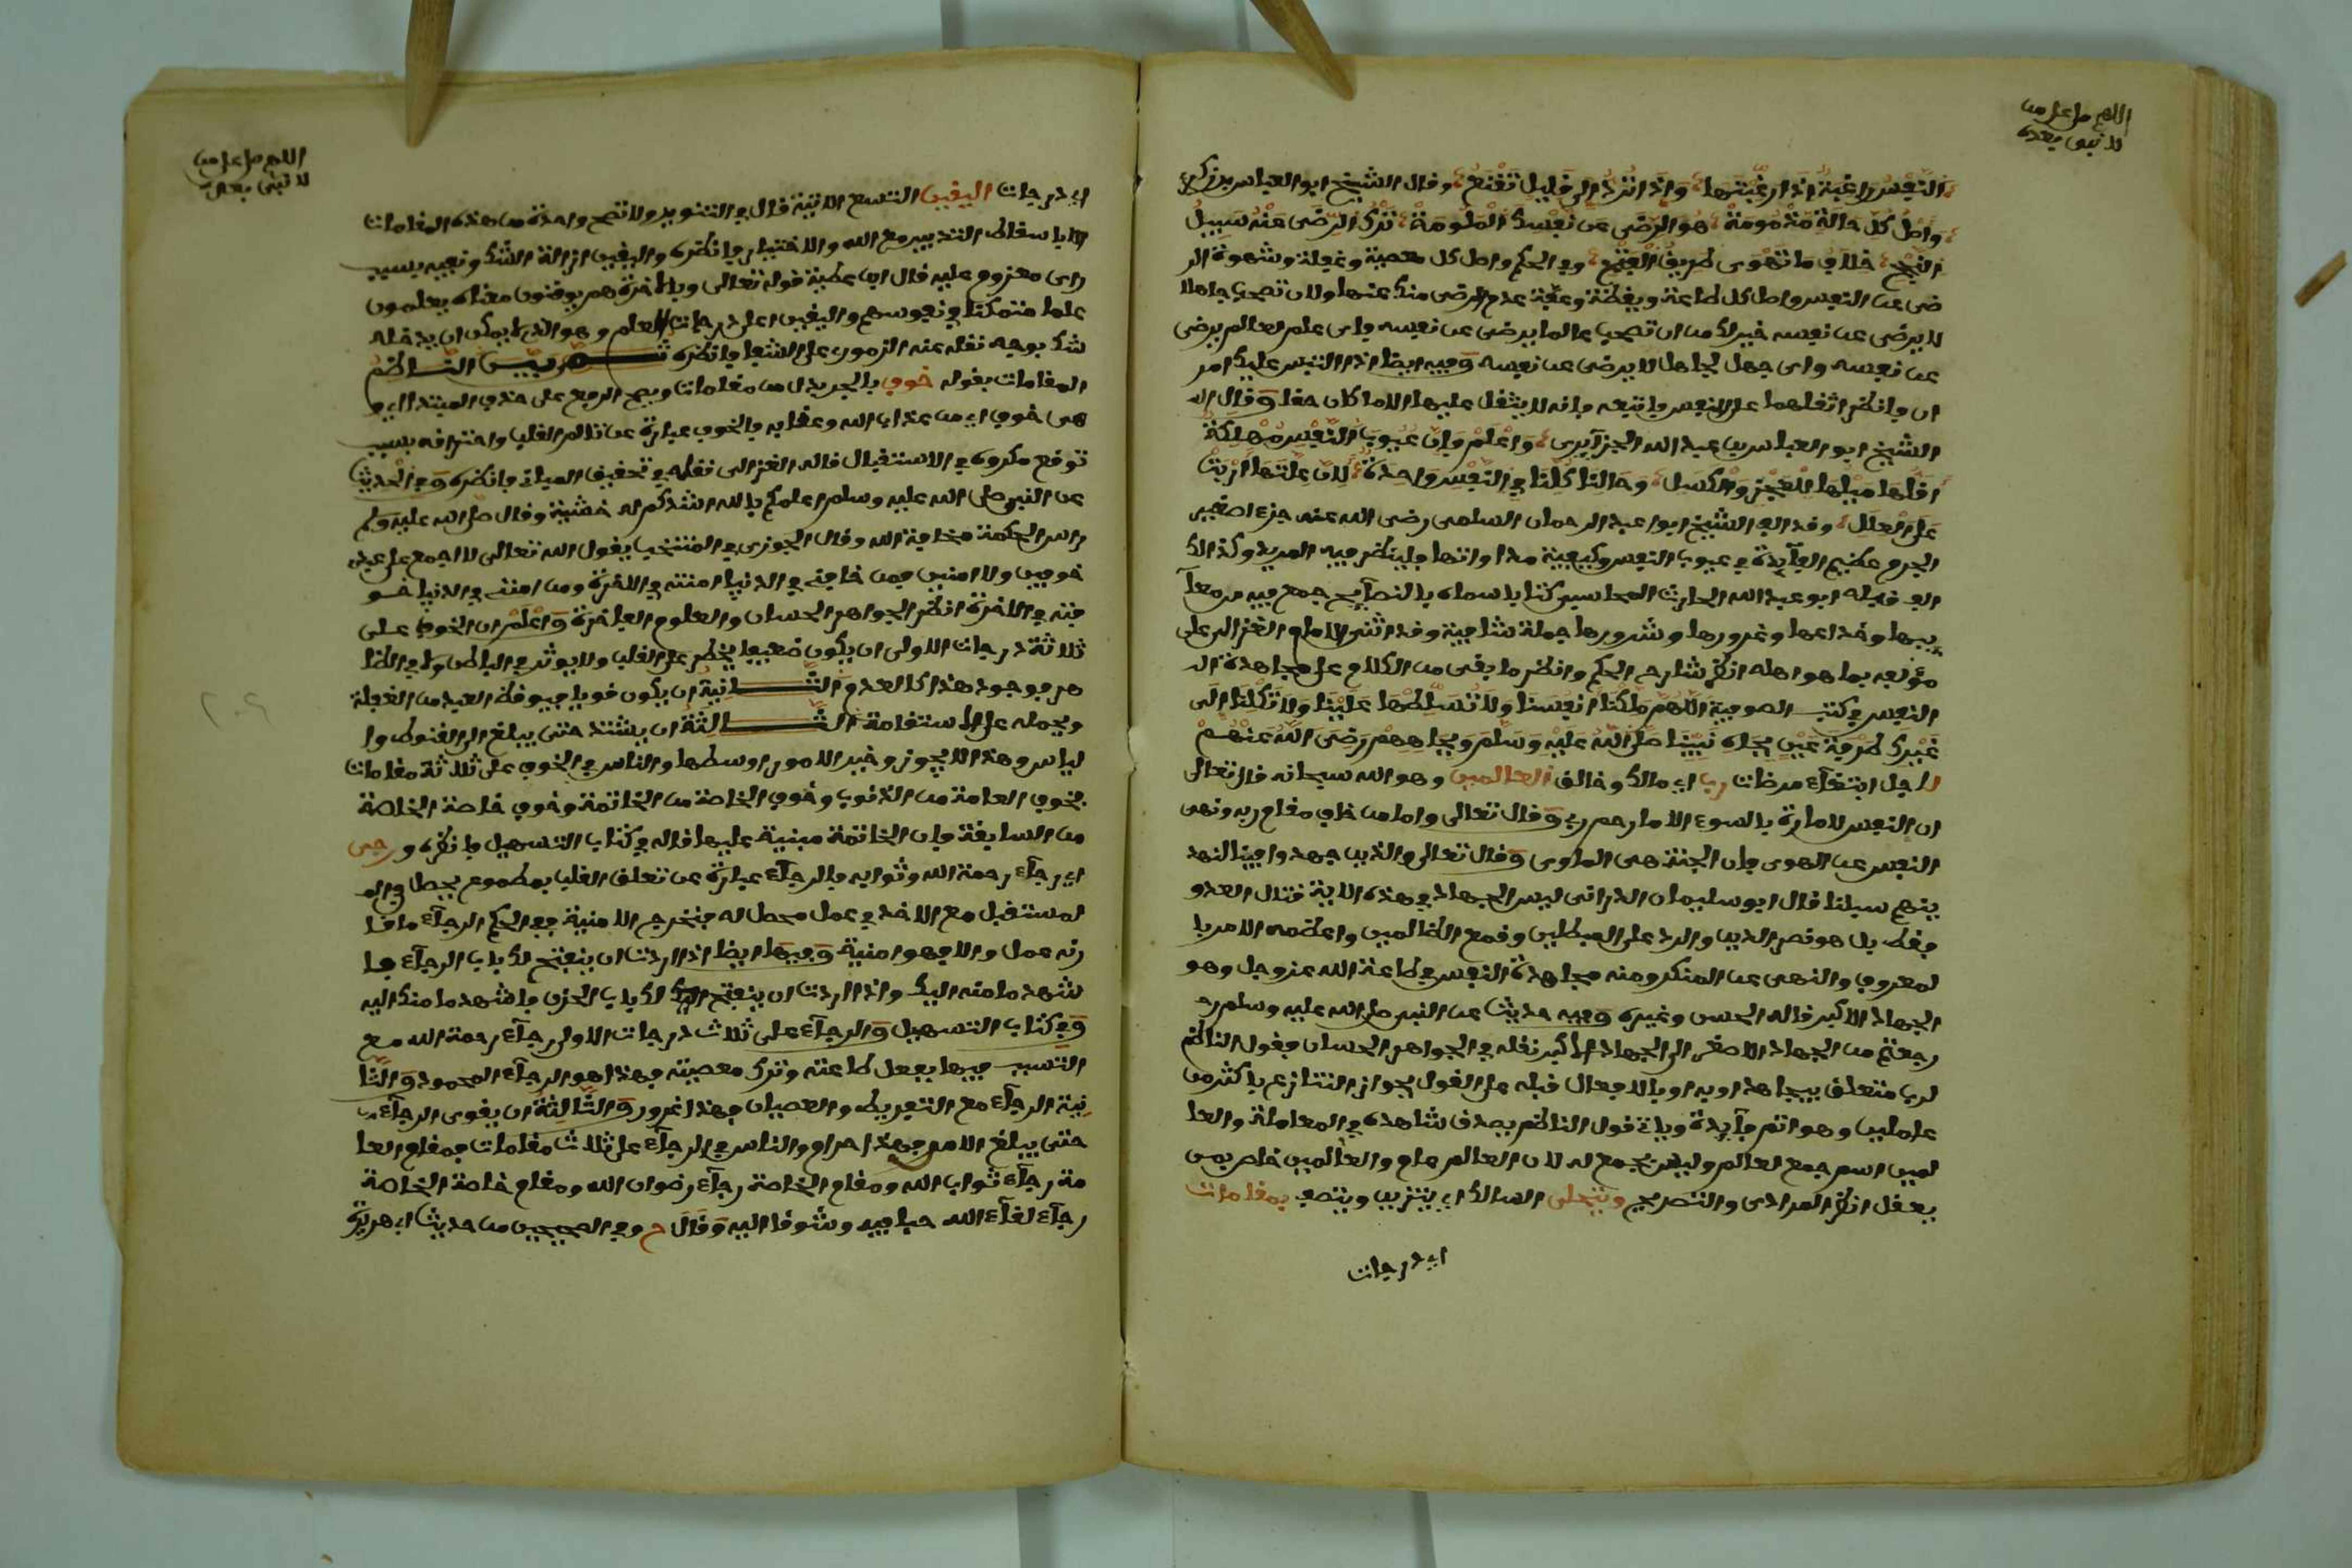 اللهم صل على من
لا نبي بعده
والنفس راغبة اذا رغبتها واذا ترد الى قليل تقنع وقال الشيخ ابو العباس بن زكري
واصل كل حالة مذمومة هو الرضى عن نفسك الملومة ترك الرضى عنه سبيل
النجح خلاف ما تهوى طريق الفتح وفي الحكم واصل كل معصية وغفلة وشهوة الر
ضى عن النفس واصل كل طاعة ويقظة وعفة عدم الرضى منك عنها ولان تصحب جاهلا
لا يرضى عن نفسه خير لك من ان تصحب عالما يرضى عن نفسه واى علم لعالم يرضى
عن نفسه واى جهل لجاهل لا يرضى عن نفسه وفيه ايضا اذا التبس عليك امر
ان فانظر اثقلهما على النفس فاتبعه فانه لا يثقل عليها الا ما كان حقا وقال ال
الشيخ ابو العباس بن عبد الله الجزآيرى واعلم وان عيوب النفس مهلكة
اقلها ميلها للعجز والكسل وحالنا كلنا في النفس واحدة لان علتها اربت
على العلل وقد الف الشيخ ابو عبد الرحمان السلمى رضى الله عنه جزءا صغير
الجرم عظيم الفآيدة في عيوب النفس وكيفية مداواتها فلينظر فيه المريد وكذالك
الف قبله ابو عبد الله الحارث المحاسبي كتابا سماه بالنصآيح جمع فيه من معآ
ييبها وخداعها وغرورها وشرورها جملة شافية وقد اثنى الامام الغزالى على
مؤلفه بما هو اهله انظر شارح الحكم وانظر ما بقى من الكلام على مجاهدة ال
النفس في كتب الصوفية اللهم ملكنا انفسنا ولا تسلطها علينا ولا تكلنا الى
غيرك طرفة عين بجاه نبينا صلى الله عليه وسلم وبجاههم رضى الله عنهم
لاجل ابتغآء مرضات رب اى مالك وخالق العالمين وهو الله سبحانه قال تعالى
ان النفس لامارة بالسوء الا ما رحم ربي وقال تعالى واما من خاف مقام ربه ونهى
النفس عن الهوى فان الجنة هى الماوى وقال تعالى والذين جهدوا فينا لنهد
ينهم سبلنا قال ابو سليمان الدرانى ليس الجهاد في هذه الاية قتال العدو
فقط بل هو نصر الدين والرد على المبطلين وقمع الظالمين واعظمه الامر با
لمعروف والنهى عن المنكر ومنه مجاهدة النفس في طاعة الله عز وجل وهو
الجهاد الاكبر قاله الحسن وغيره وفيه حديث عن النبي صلى الله عليه وسلم ر
رجعتم من الجهاد الاصغر الى الجهاد الاكبر نقله في الجواهر الحسان فقول الناظم
لرب متعلق بيجاهد او به او بالافعال قبله على القول بجواز التنازع باكثر من
عاملين وهو اتم فآيدة وياة قول الناظم بصدق شاهده في المعاملة والعا
لمين اسم جمع لعالم وليس بجمع له لان العالم عام والعالمين خاص بمن
يعقل انظر المرادى والتصريح ويتحلى السالك اى يتزين ويتصف بمقامات
اى درجات
اللهم صل على من
لا نبي بعده
اى درجات اليقين التسع الاتية قال في التنوير ولا تصح واحدة من هذه المقامات
الا باسقاط التدبير مع الله والاختيار فانظره واليقين ازالة الشك ونفيه بسبب
راى معزوم عليه قال ابن عطية قوله تعالى وبالاخرة هم يوقنون معناه يعلمون
علما متمكنا في نفوسهم واليقين اعلى درجات العلم وهو الذى لا يمكن ان يدخله
شك بوجه نقله عنه الزمورى على الشفا فانظره ثم بين الناظم
المقامات بقوله خوف بالجر بدل من مقامات ويصح الرفع على حذف المبتدا اى و
هى خوف اى من عذاب الله وعقابه فالخوف عبارة عن تالم القلب واحتراقه بسبب
توقع مكروه في الاستقبال قاله الغزالى نقله في تحقيق المباني فانظره وفي الحديث
عن النبي صلى الله عليه وسلم اعلمكم بالله اشدكم له خشية وقال صلى الله عليه وسلم
راس الحكمة مخافة الله وقال الجوزى في المنتخب يقول الله تعالى لا اجمع على عبدى
خوفين ولا امنين فمن خافنى في الدنيا امنته في الاخرة ومن امننى في الدنيا خو
فته في الاخرة انظر الجواهر الحسان والعلوم الفاخرة واعلم ان الخوف على
ثلاثة درجات الاولى ان يكون ضعيفا يخطر على القلب ولا يوثر في الباطن ولا في الظا
هر فوجود هذا كالعدم والثانية ان يكون قويا فيوقظ العبد من الغفلة
ويحمله على الاستقامة الثالثة ان يشتد حتى يبلغ الى القنوط وا
لياس وهذا لا يجوز وخير الامور اوسطها والناس في الخوف على ثلاثة مقامات
فخوف العامة من الذنوب وخوف الخاصة من الخاتمة وخوف خاصة الخاصة
من السابقة فان الخاتمة مبنية عليها قاله في كتاب التسهيل فانظره ورجى
اى رجآء رحمة الله وثوابه فالرجآء عبارة عن تعلق القلب بمطموع يحصل في ال
لمستقبل مع الاخذ في عمل محصل له فتخرج الامنية ففي الحكم الرجآء ما قا
رنه عمل والا فهو امنية وفيها ايضا اذا اردت ان ينفتح لك باب الرجآء فا
شهد ما منه اليك واذا اردت ان ينفتح لك باب الحزن فاشهد ما منك اليه
وفي كتاب التسهيل والرجآء على ثلاث درجات الاولى رجآء رحمة الله مع
التسبب فيها بفعل طاعته وترك معصيته فهذا هو الرجآء المحمود والثا
نية الرجآء مع التفريط والعصيان فهذا غرور والثالثة ان يقوى الرجآء
حتى يبلغ الامن فهذا حرام والناس في الرجآء على ثلاث مقامات فمقام العا
مة رجآء ثواب الله ومقام الخاصة رجآء رضوان الله ومقام خاصة الخاصة
رجآء لقآء الله حبا فيه وشوقا اليه وقال ح وفي الصحيحين من حديث ابي هريرة